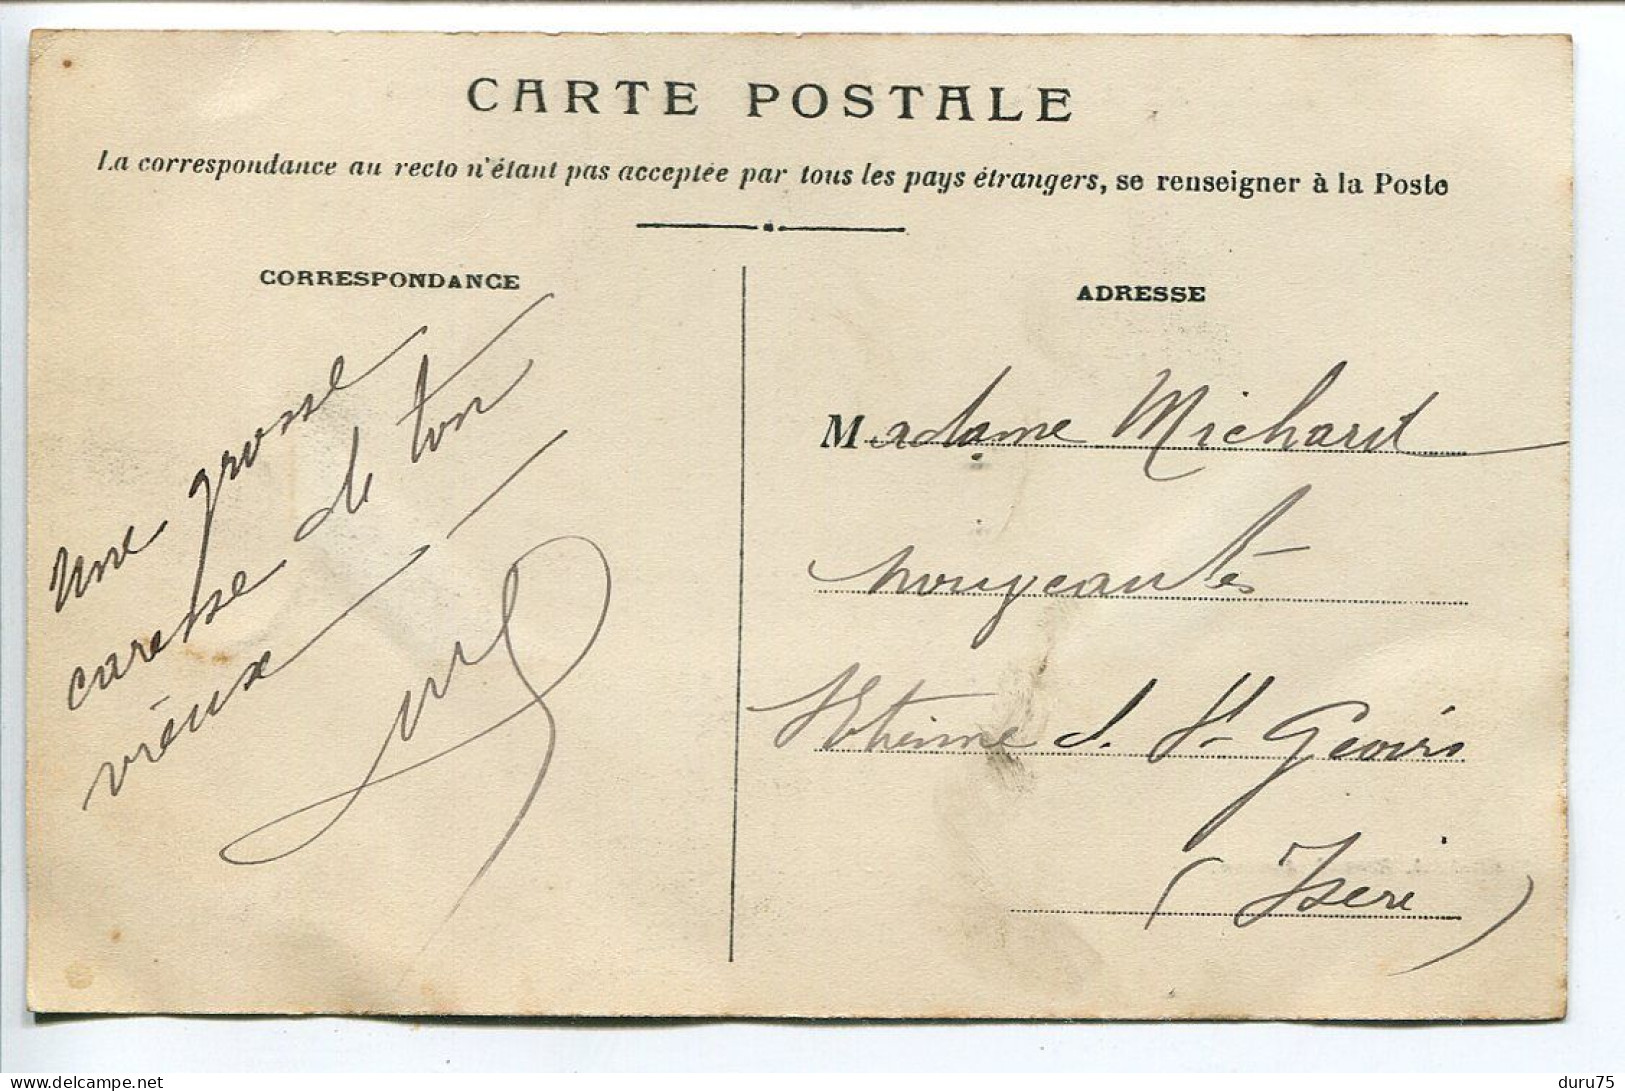 CARTE POSTALE
La correspondance au recto n'étant pas acceptée par tous les pays étrangers, se renseigner à la Poste
CORRESPONDANCE
Une grosse
caresse de ton
vieux
ADRESSE
Madame Michard
nouveautés
St Etienne d. St Geoirs
(Isère)
delcampe.net
duru75